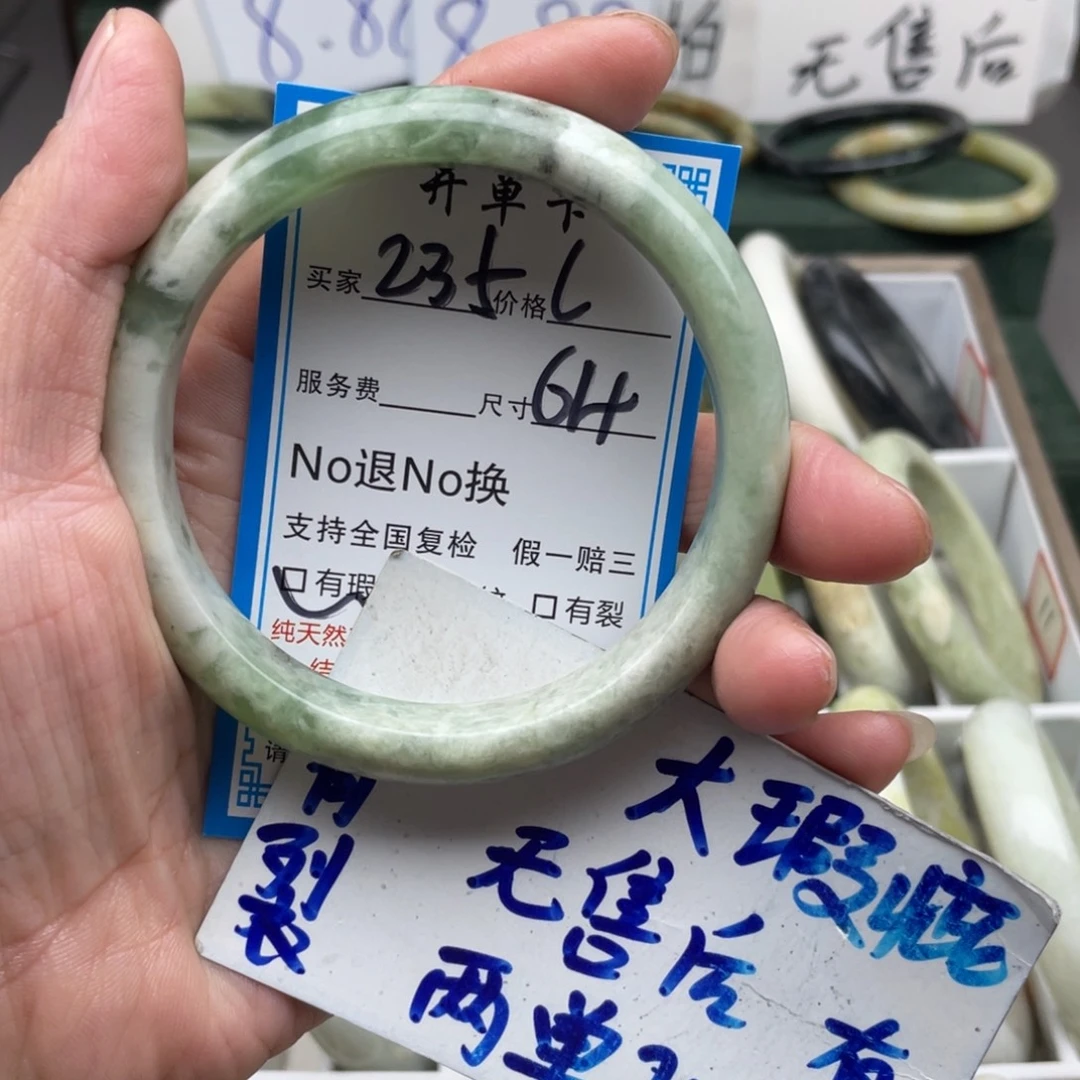 8.8 8.88 拍
无售后
开单卡
买家 235 价格 L
服务费 尺寸 64
No退No换
支持全国复检 假一赔三
口有瑕 口有裂
纯天然
结
请
有裂
大瑕疵
无售后
两单 有